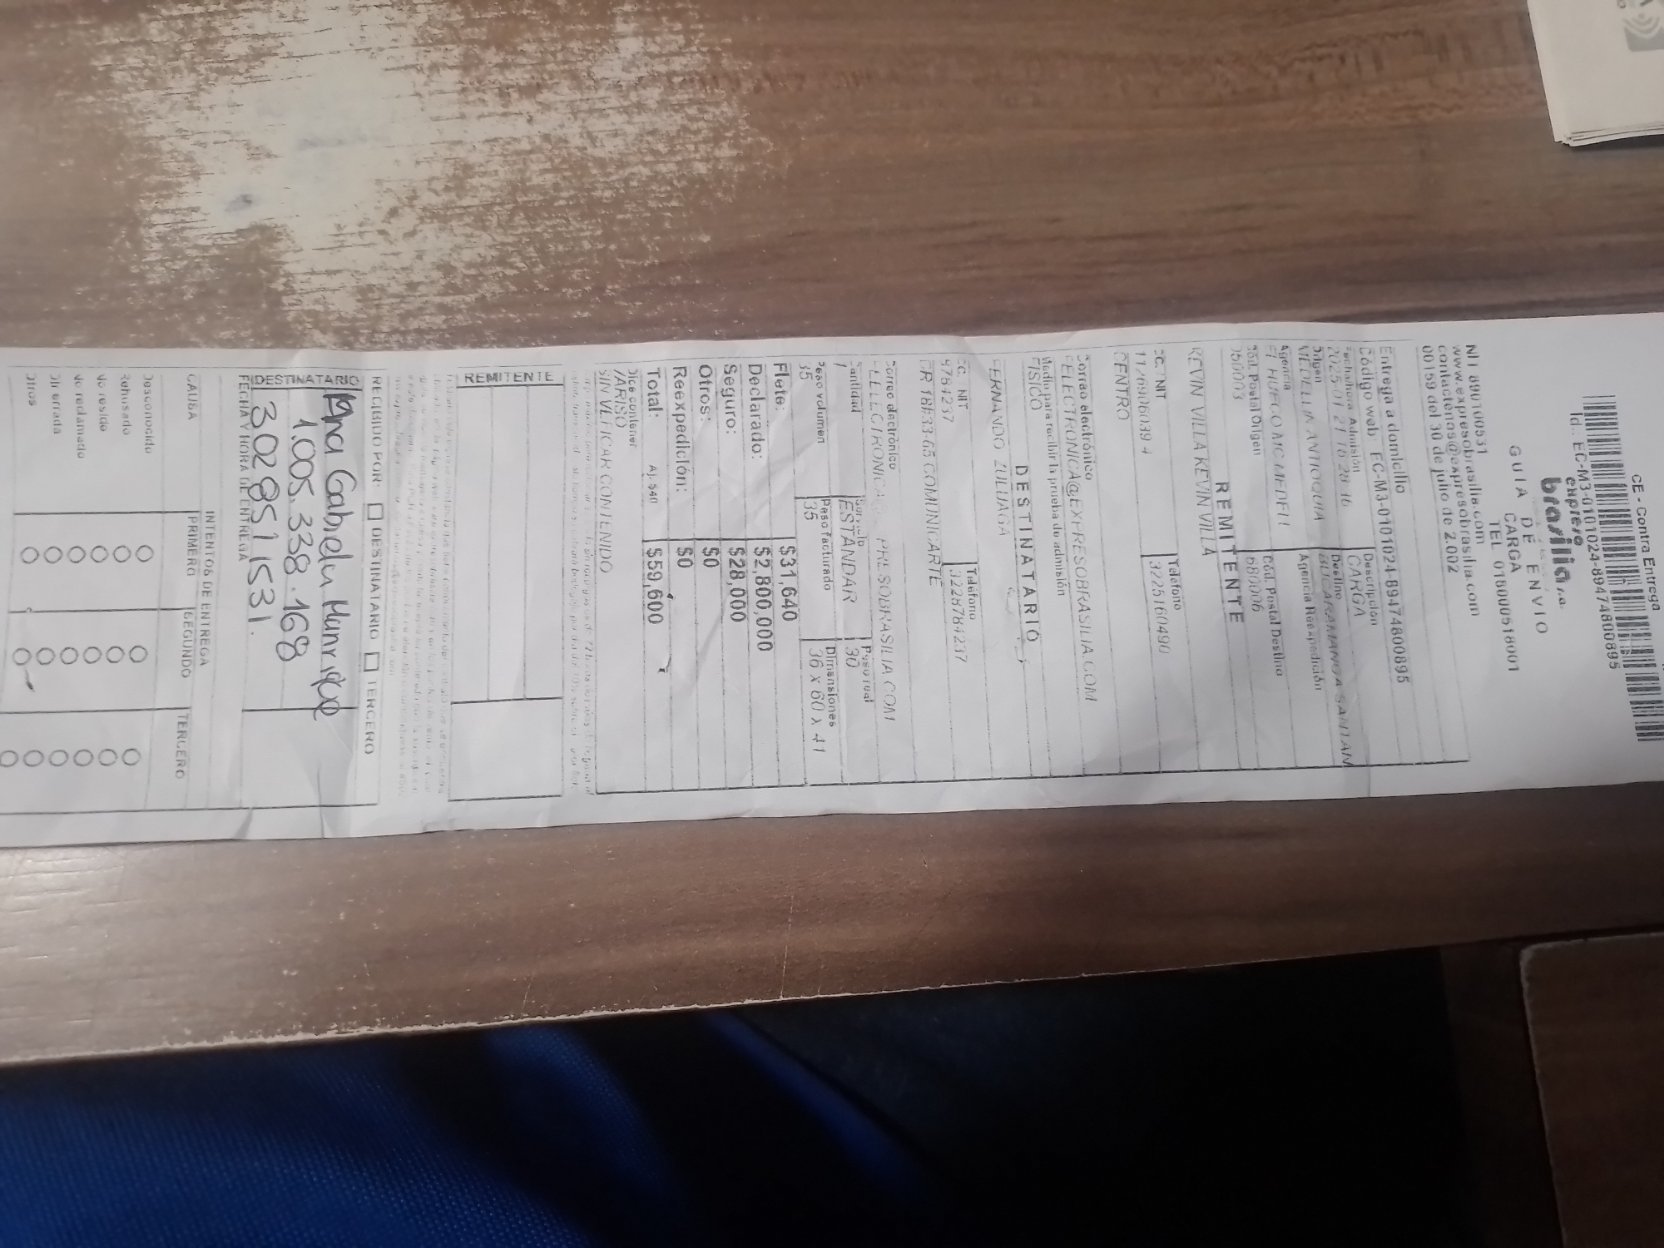 CE - Contra Entrega
Id.: EC-M3-0101024-89474800895
expreso
brasilia s.a.
GUIA DE ENVIO
CARGA
TEL 018000518001
NIT 890100531
www.expresobrasilia.com
contactenos@expresobrasilia.com
00159 del 30 de julio de 2.002
Entrega a domicilio
Código web EC-M3-0101024-89474800895
Fecha/hora Admisión Descripción
2025-01-21 18:29:16 CARGA
Origen Destino
MEDELLIN ANTIOQUIA BUCARAMANGA SANTAN
Agencia Agencia Reexpedición
EL HUECO MC MEDELL
Cód. Postal Origen Cód. Postal Destino
050003 680006
REMITENTE
KEVIN VILLA KEVIN VILLA
CC. / NIT Teléfono
3225160490
CENTRO
Correo electrónico
FELECTRONICA@EXPRESOBRASILIA.COM
Medio para recibir la prueba de admisión
FISICO
DESTINATARIO
FERNANDO ZULUAGA
CC. NIT Teléfono
3228784237
CR 18E33-65 COMUNICARTE
Correo electrónico
Cantidad Servicio Peso real
1 ESTANDAR 30
Peso volumen Peso facturado Dimensiones
35 35 36 x 60 x 41
Flete: $31,640
Declarado: $2,800,000
Seguro: $28,000
Otros: $0
Reexpedición: $0
Total: $59,600
Dice contener
VARISO
SIN VEFICAR CONTENIDO
REMITENTE
RECIBIDO POR: DESTINATARIO TERCERO
DESTINATARIO
Ana Gabriela Manrique
1.005.338.168
302 851 1531.
FECHA Y HORA DE ENTREGA
INTENTOS DE ENTREGA
CAUSA PRIMERO SEGUNDO TERCERO
Desconocido
Rehusado
No reside
No reclamado
Dir errada
Otros